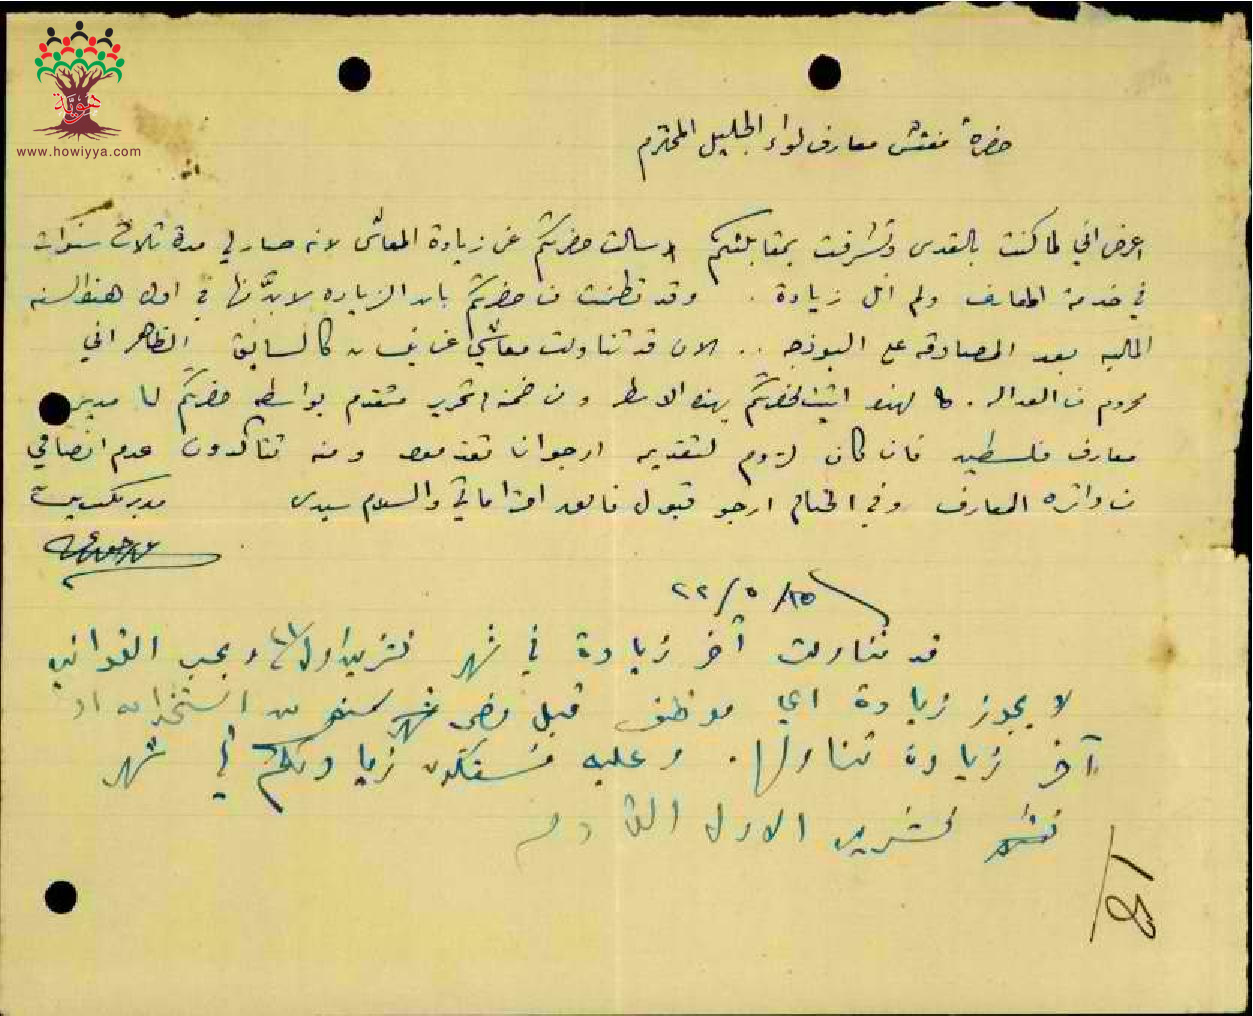 هوية
www.howiyya.com
حضرة مفتش معارف لواء الجليل المحترم
اعرض اني لما كنت بالقدس وتشرفت بمقابلتكم سالت حضرتكم عن زيادة المعاش لانه صار لي مدة ثلاث سنوات
في خدمة المعارف ولم انل زيادة . وقد تطمنت من حضرتكم بان الزياده لا بد منها في اول هذه السنه
الماليه بعد المصادقه على البودجه .. الان قد تناولت معاشي عن نيسان كالسابق الظاهر اني
محروم من العداله . لهذا اتيت لحضرتكم بهذه الاسطر ومن ضمنه تحرير متقدم بواسطة حضرتكم لمدير
معارف فلسطين فان كان لزوم لتقديمه ارجو ان تقدموه ومنه تتأكدون عدم انصافي
من دائرة المعارف وفي الختام ارجو قبول فائق احتراماتي والسلام سيدي مدير مكتب
٢٢/٥/١٥
قد تناولت آخر زيادة في شهر تشرين اول ٢١ وبحسب القوانين
لا يجوز زيادة اي موظف قبل مضي سنة من استخدامه او
آخر زيادة تناولها . وعليه فستكون زيادتكم في شهر
تشرين الاول القادم